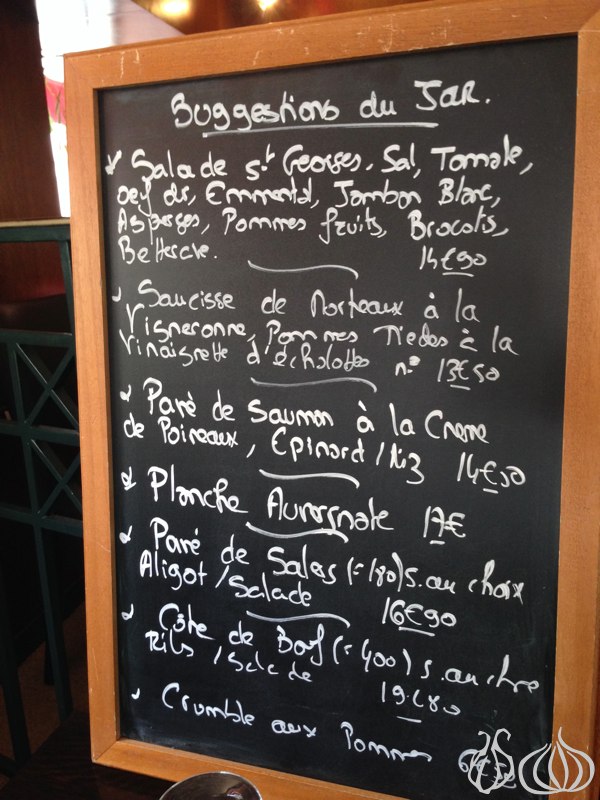 Suggestions du JOR.
Salade St Georges. Sal, Tomate,
oeuf dr, Emmental, Jambon Blanc,
Asperges, Pommes fruits, Brocolis,
Betterave. 14€90
Saucisse de Morteaux à la
Vigneronne, Pommes Tiedes à la
Vinaigrette d'écholottes 13€50
Pavé de Saumon à la Creme
de Poireaux, Epinard / Riz 14€50
Planche Auvergnate 17€
Pavé de Salers (=180) s. au choix
Aligot / Salade 16€90
Côte de Boeuf (=400) s. au choix
/ Salade 19.€80
Crumble aux Pommes